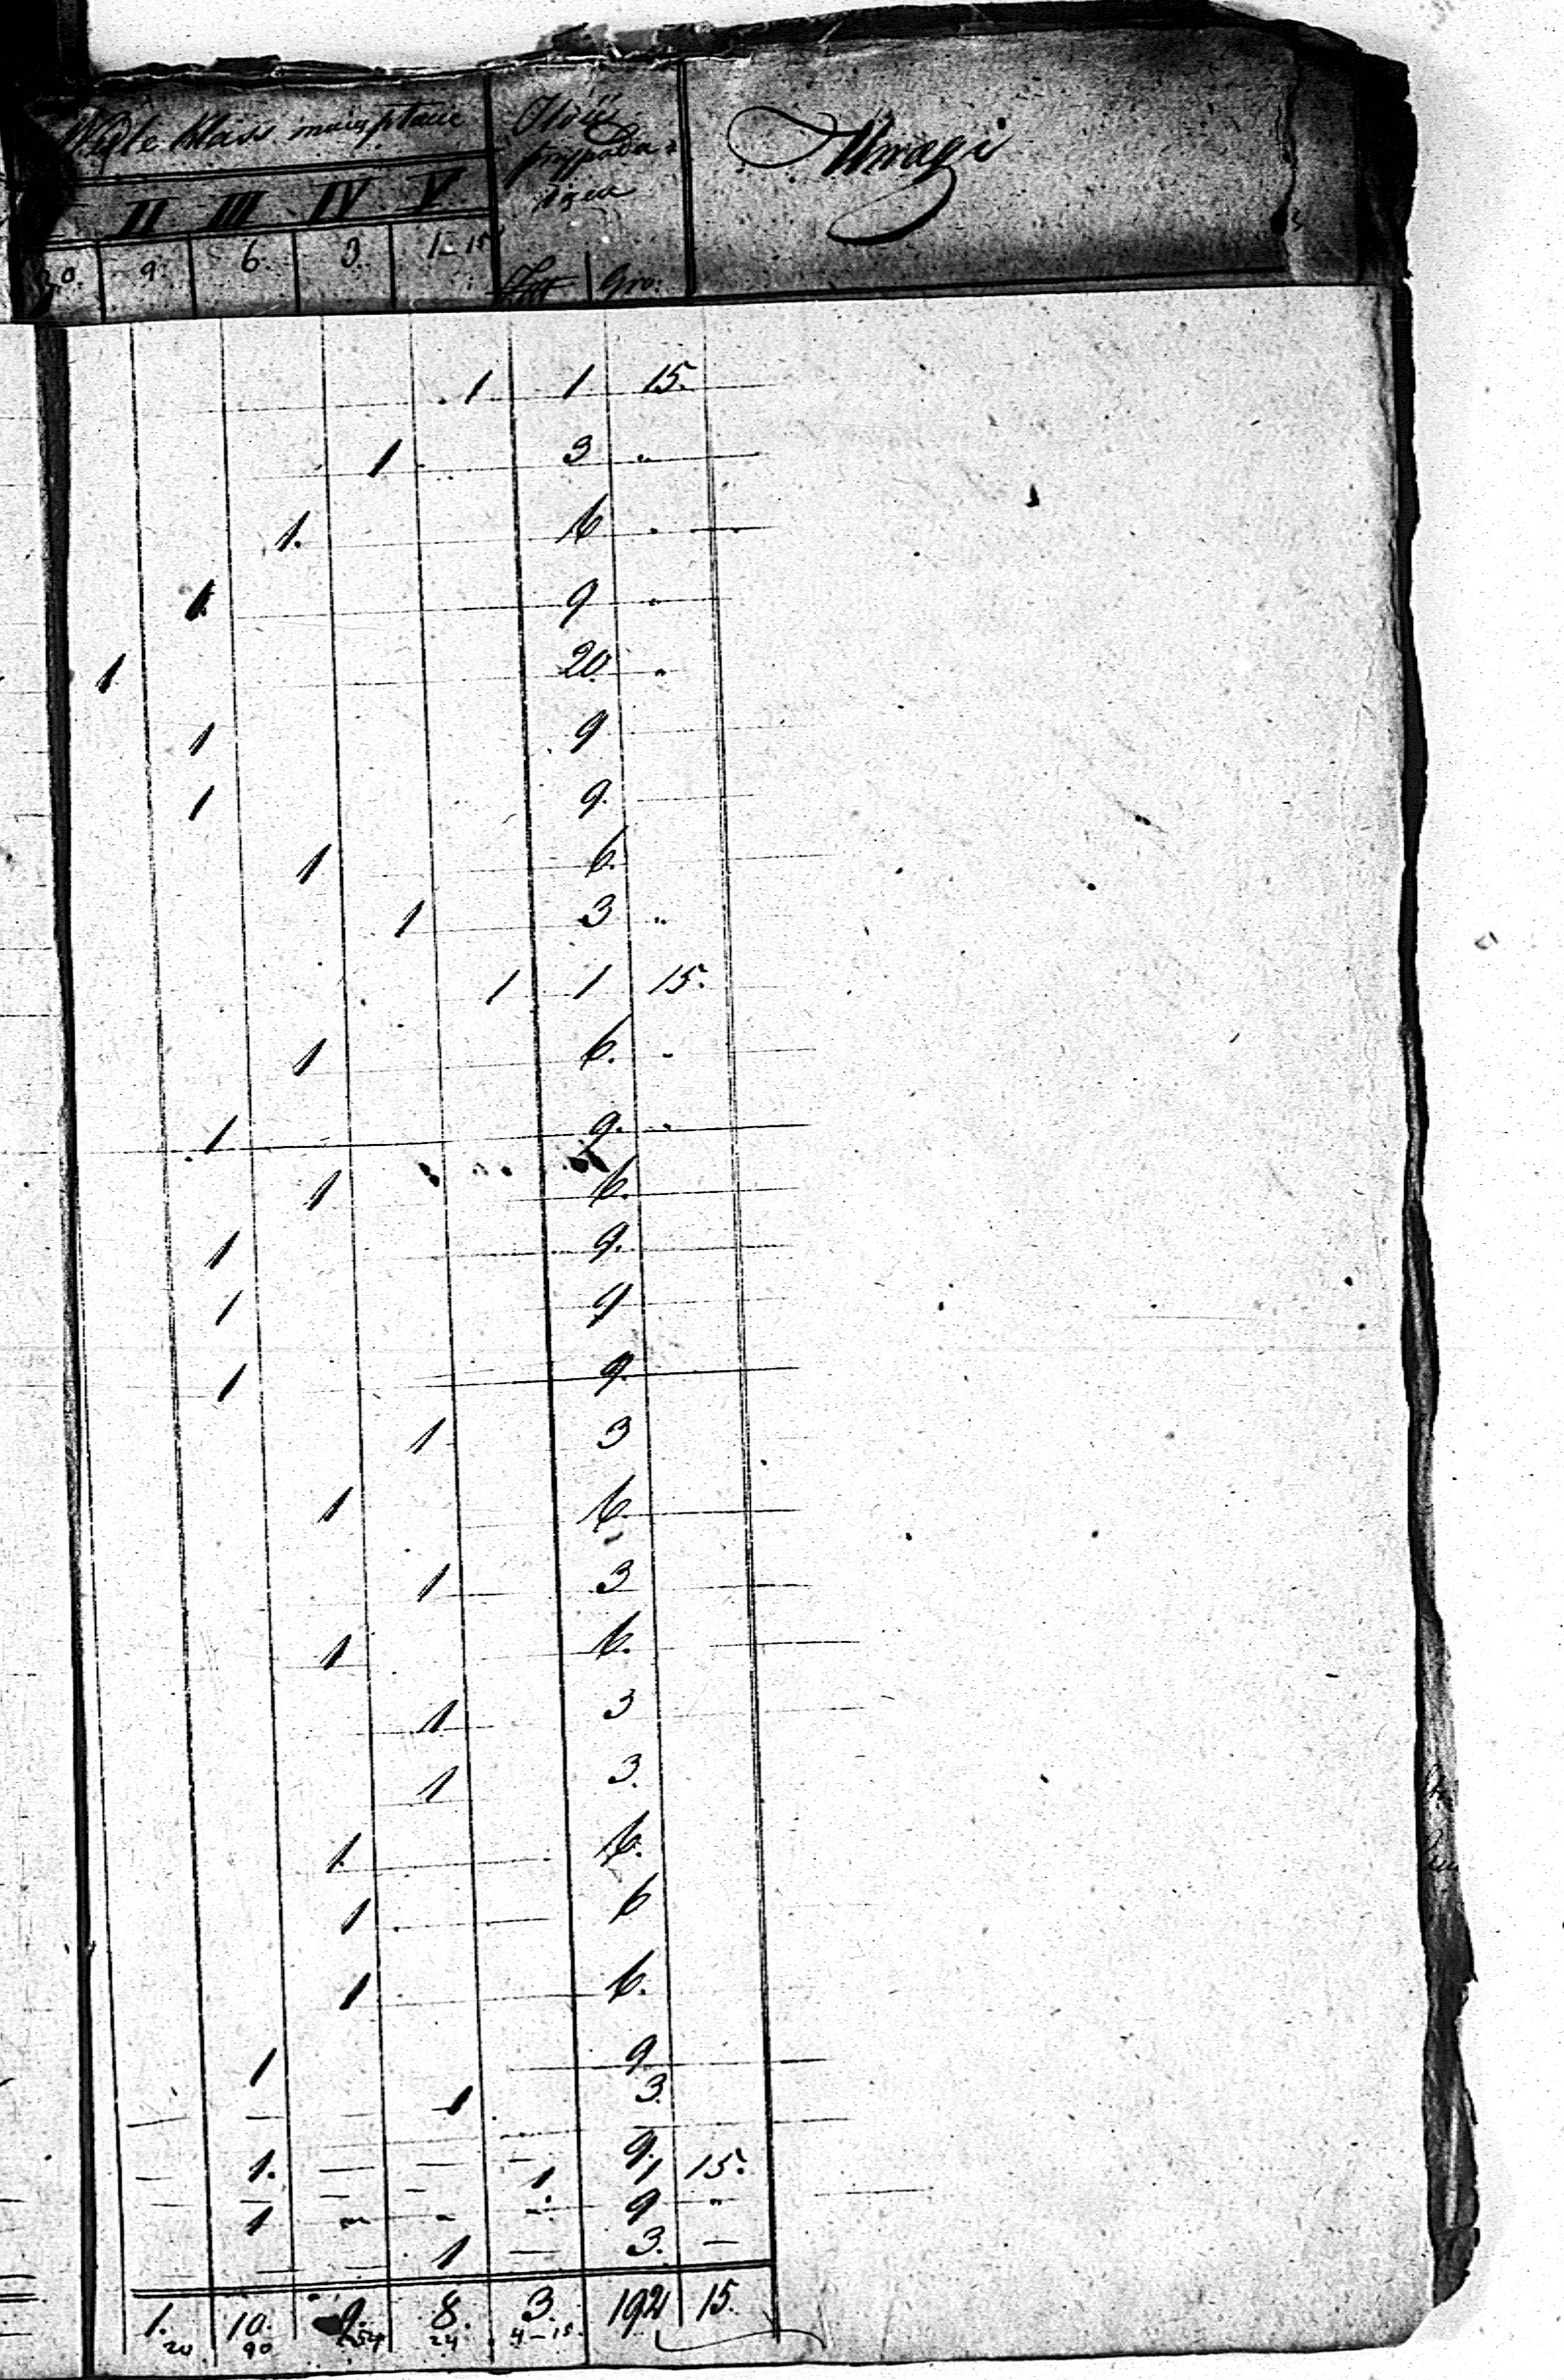 Wedle klass miasta
Ilość przypada- Uwagi
II III IV V
20. 9. 6. 3. 1-15
Złp Gro:
1 1 15.
1 3 "
1. 6 "
1 9 "
1 20. "
1 9
1 9.
1 6.
1 3 "
1 1 15.
1 6. "
1 9. "
1 6.
1 9.
1 9
1 9.
1 3
1 6.
1 3
1 6.
1 3
1 3.
1. 6.
1 6
1 6.
1 9
1 3.
1. — — — 9.
— — — — 1 1 15.
— 1 - - - 9 "
— — — 1 — 3. —
1. 10. 9. 8. 3. 192 15.
20 90 54 24 4-15.